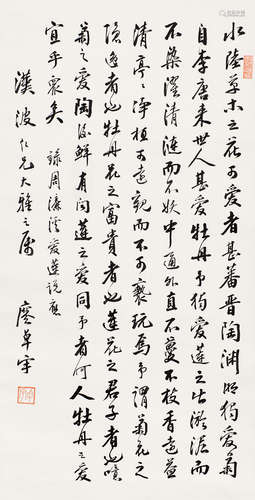 水陸草木之花可愛者甚蕃晉陶淵明獨愛菊
自李唐來世人甚愛牡丹予獨愛蓮之出淤泥而
不染濯清漣而不妖中通外直不蔓不枝香遠益
清亭〻淨植可遠觀而不可褻玩焉予謂菊花之
隱逸者也牡丹花之富貴者也蓮花之君子者也噫
菊之愛陶後鮮有聞蓮之愛同予者何人牡丹之愛
宜乎眾矣 錄周濂溪愛蓮說應
漢波仁兄大雅之屬 廖卓